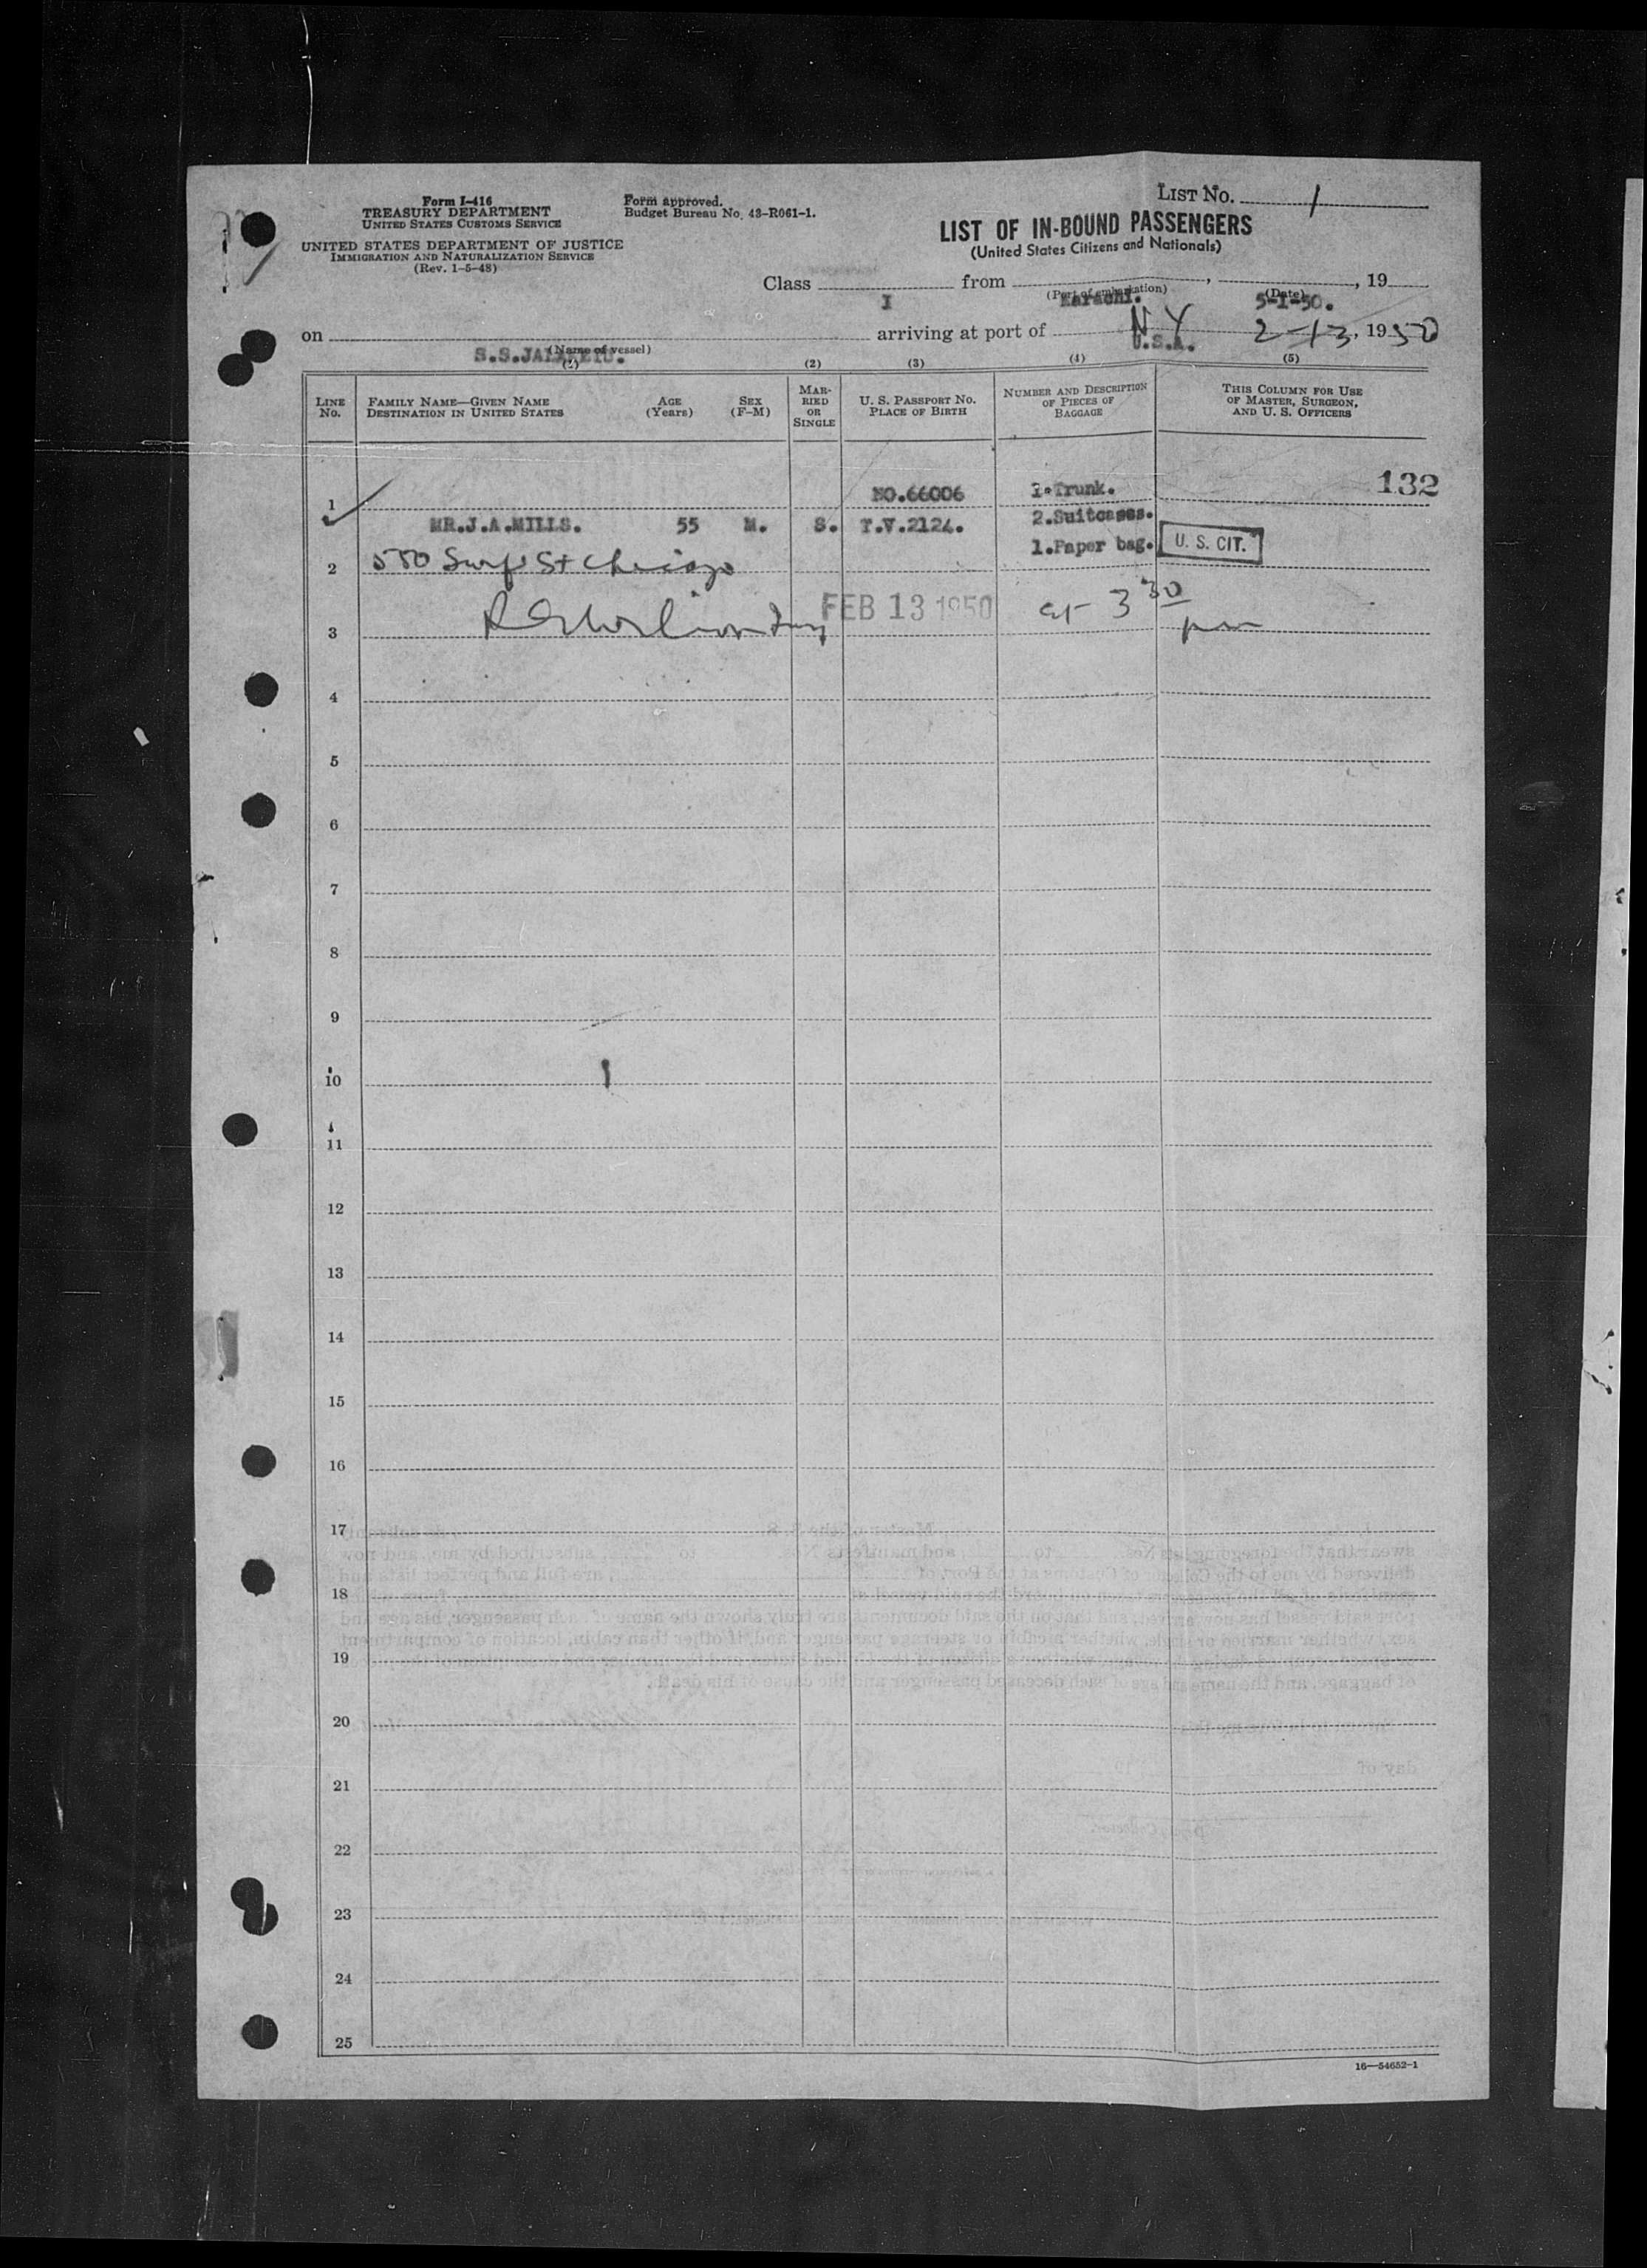 Form I-416
TREASURY DEPARTMENT
UNITED STATES CUSTOMS SERVICE
UNITED STATES DEPARTMENT OF JUSTICE
IMMIGRATION AND NATURALIZATION SERVICE
(Rev. 1-5-48)
Form approved.
Budget Bureau No. 43-R061-1.
LIST NO. 1
LIST OF IN-BOUND PASSENGERS
(United States Citizens and Nationals)
Class from , , 19
I (Port of embarkation) Karachi. (Date) 5-1-50.
on arriving at port of N Y 2-13, 1950
S.S. (Name of vessel) U.S.A.
(1) (2) (3) (4) (5)
LINE NO.
FAMILY NAME—GIVEN NAME
DESTINATION IN UNITED STATES
AGE (Years)
SEX (F-M)
MARRIED OR SINGLE
U. S. PASSPORT NO.
PLACE OF BIRTH
NUMBER AND DESCRIPTION OF PIECES OF BAGGAGE
THIS COLUMN FOR USE OF MASTER, SURGEON, AND U. S. OFFICERS
132
1 NO.66006 1.Trunk.
MR.J.A.MILLS. 55 M. S. T.V.2124. 2.Suitcases.
1.Paper bag. U. S. CIT.
2 550 Surf St Chicago
3 FEB 13 1950 at 3 30 pm
4
5
6
7
8
9
10
11
12
13
14
15
16
17
18
19
20
21
22
23
24
25
16—54652-1